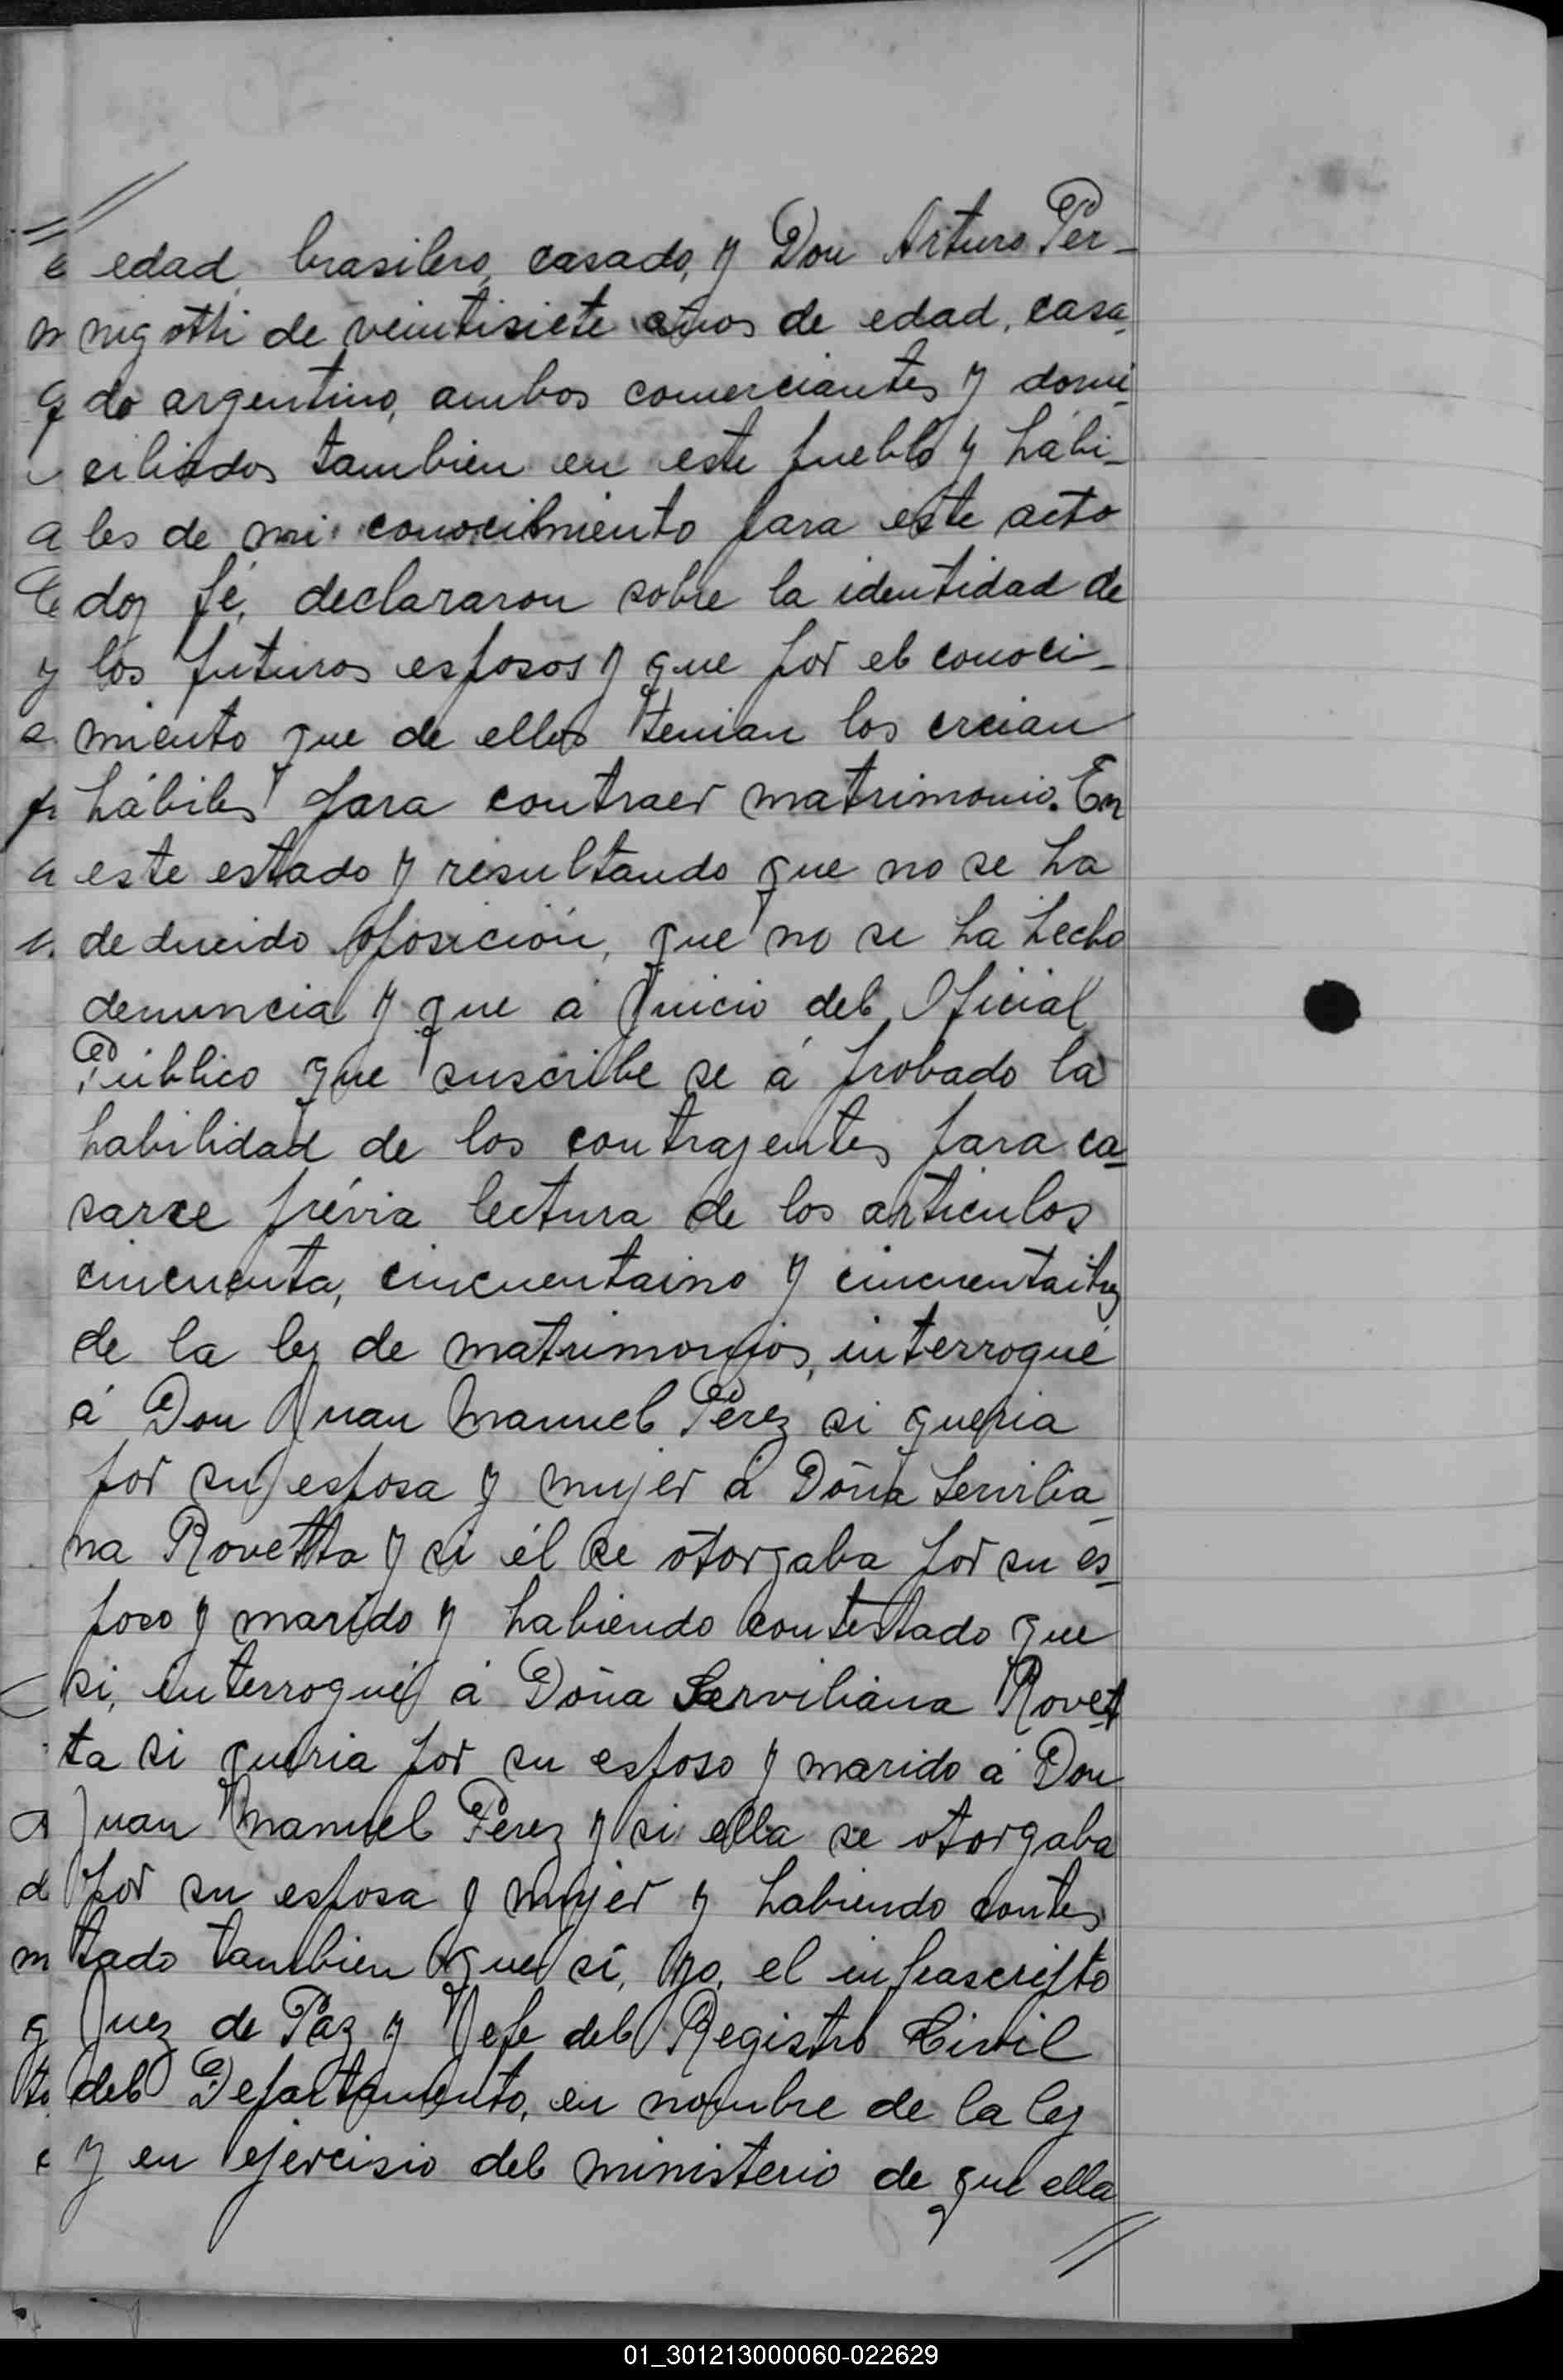 //
edad, brasilero, casado, y Don Arturo Per-
nigotti de veintisiete años de edad, casa-
do argentino, ambos comerciantes y domi-
ciliados tambien en este pueblo y hábi-
les de mi conocimiento para este acto
doy fé, declararon sobre la identidad de
los futuros esposos y que por el conoci-
miento que de ellos tenian los creian
hábiles para contraer matrimonio. En
este estado y resultando que no se ha
deducido oposición, que no se ha hecho
denuncia y que á juicio del Oficial
Público que suscribe se á probado la
habilidad de los contrayentes para ca-
sarse prévia lectura de los artículos
cincuenta, cincuentaino y cincuentaitres
de la ley de matrimonios, interrogué
á Don Juan Manuel Perez si queria
por su esposa y mujer á Doña Servilia-
na Rovetta y si él se otorgaba por su es-
poso y marido y habiendo contestado que
si, interrogué á Doña Serviliana Rovet-
ta si queria por su esposo y marido á Don
Juan Manuel Perez y si ella se otorgaba
por su esposa y mujer y habiendo contes
tado tambien que sí, yo, el infrascripto
Juez de Paz y Jefe del Registro Civil
del Departamento, en nombre de la ley
y en ejercisio del ministerio de que ella
//
01_301213000060-022629